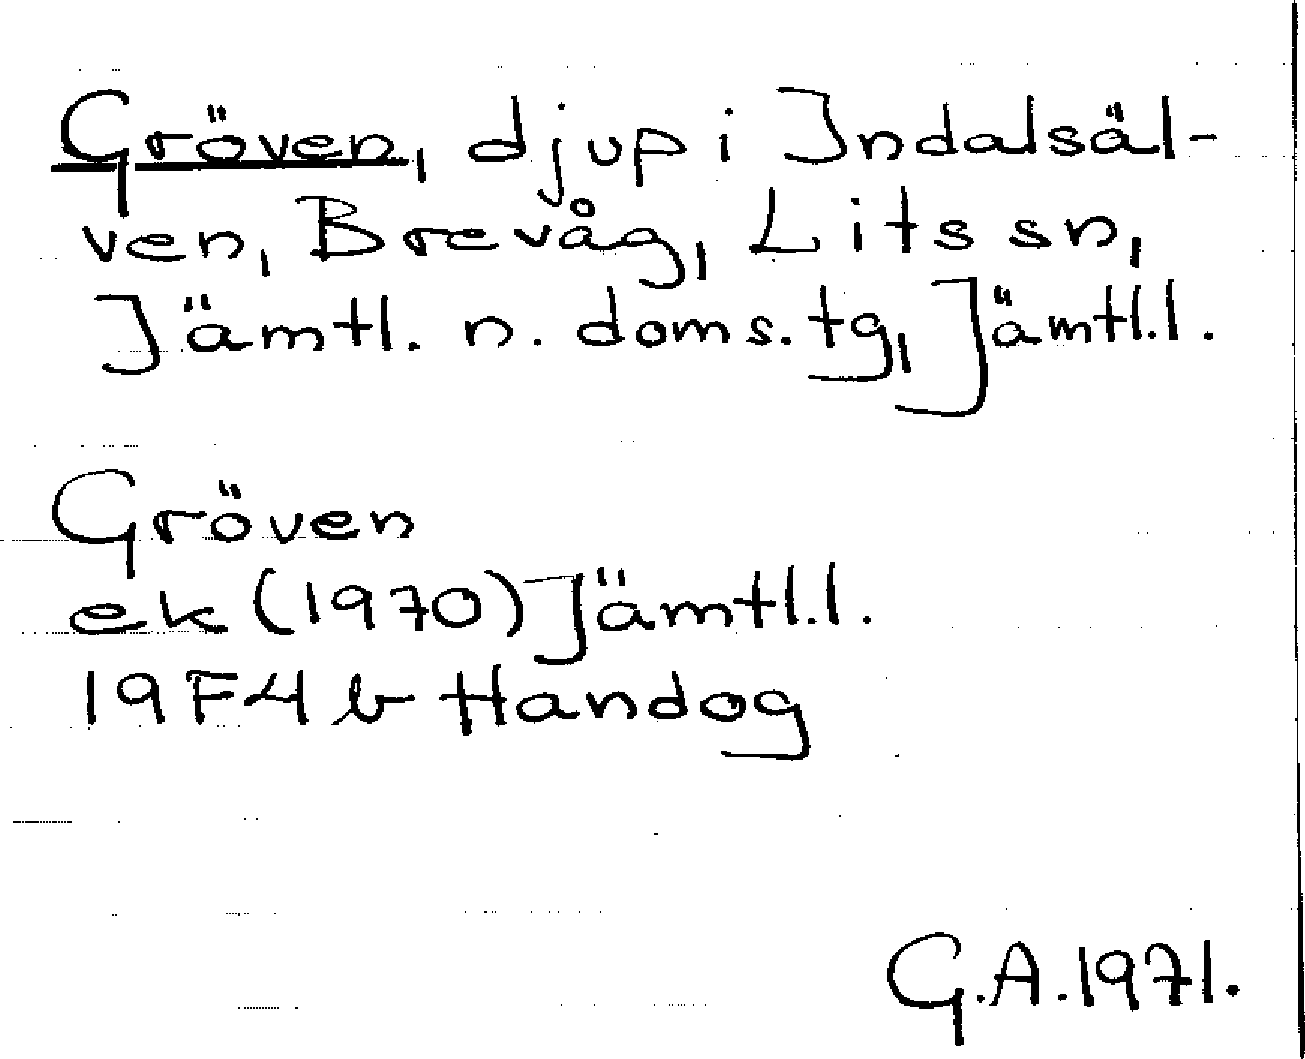 Gröven, djup i Indalsäl-
ven, Brevåg, Lits sn,
Jämtl. n. doms. tg, Jämtl.l.
Gröven
ek (1970) Jämtl.l.
19F4b Handog
G.A. 1971.